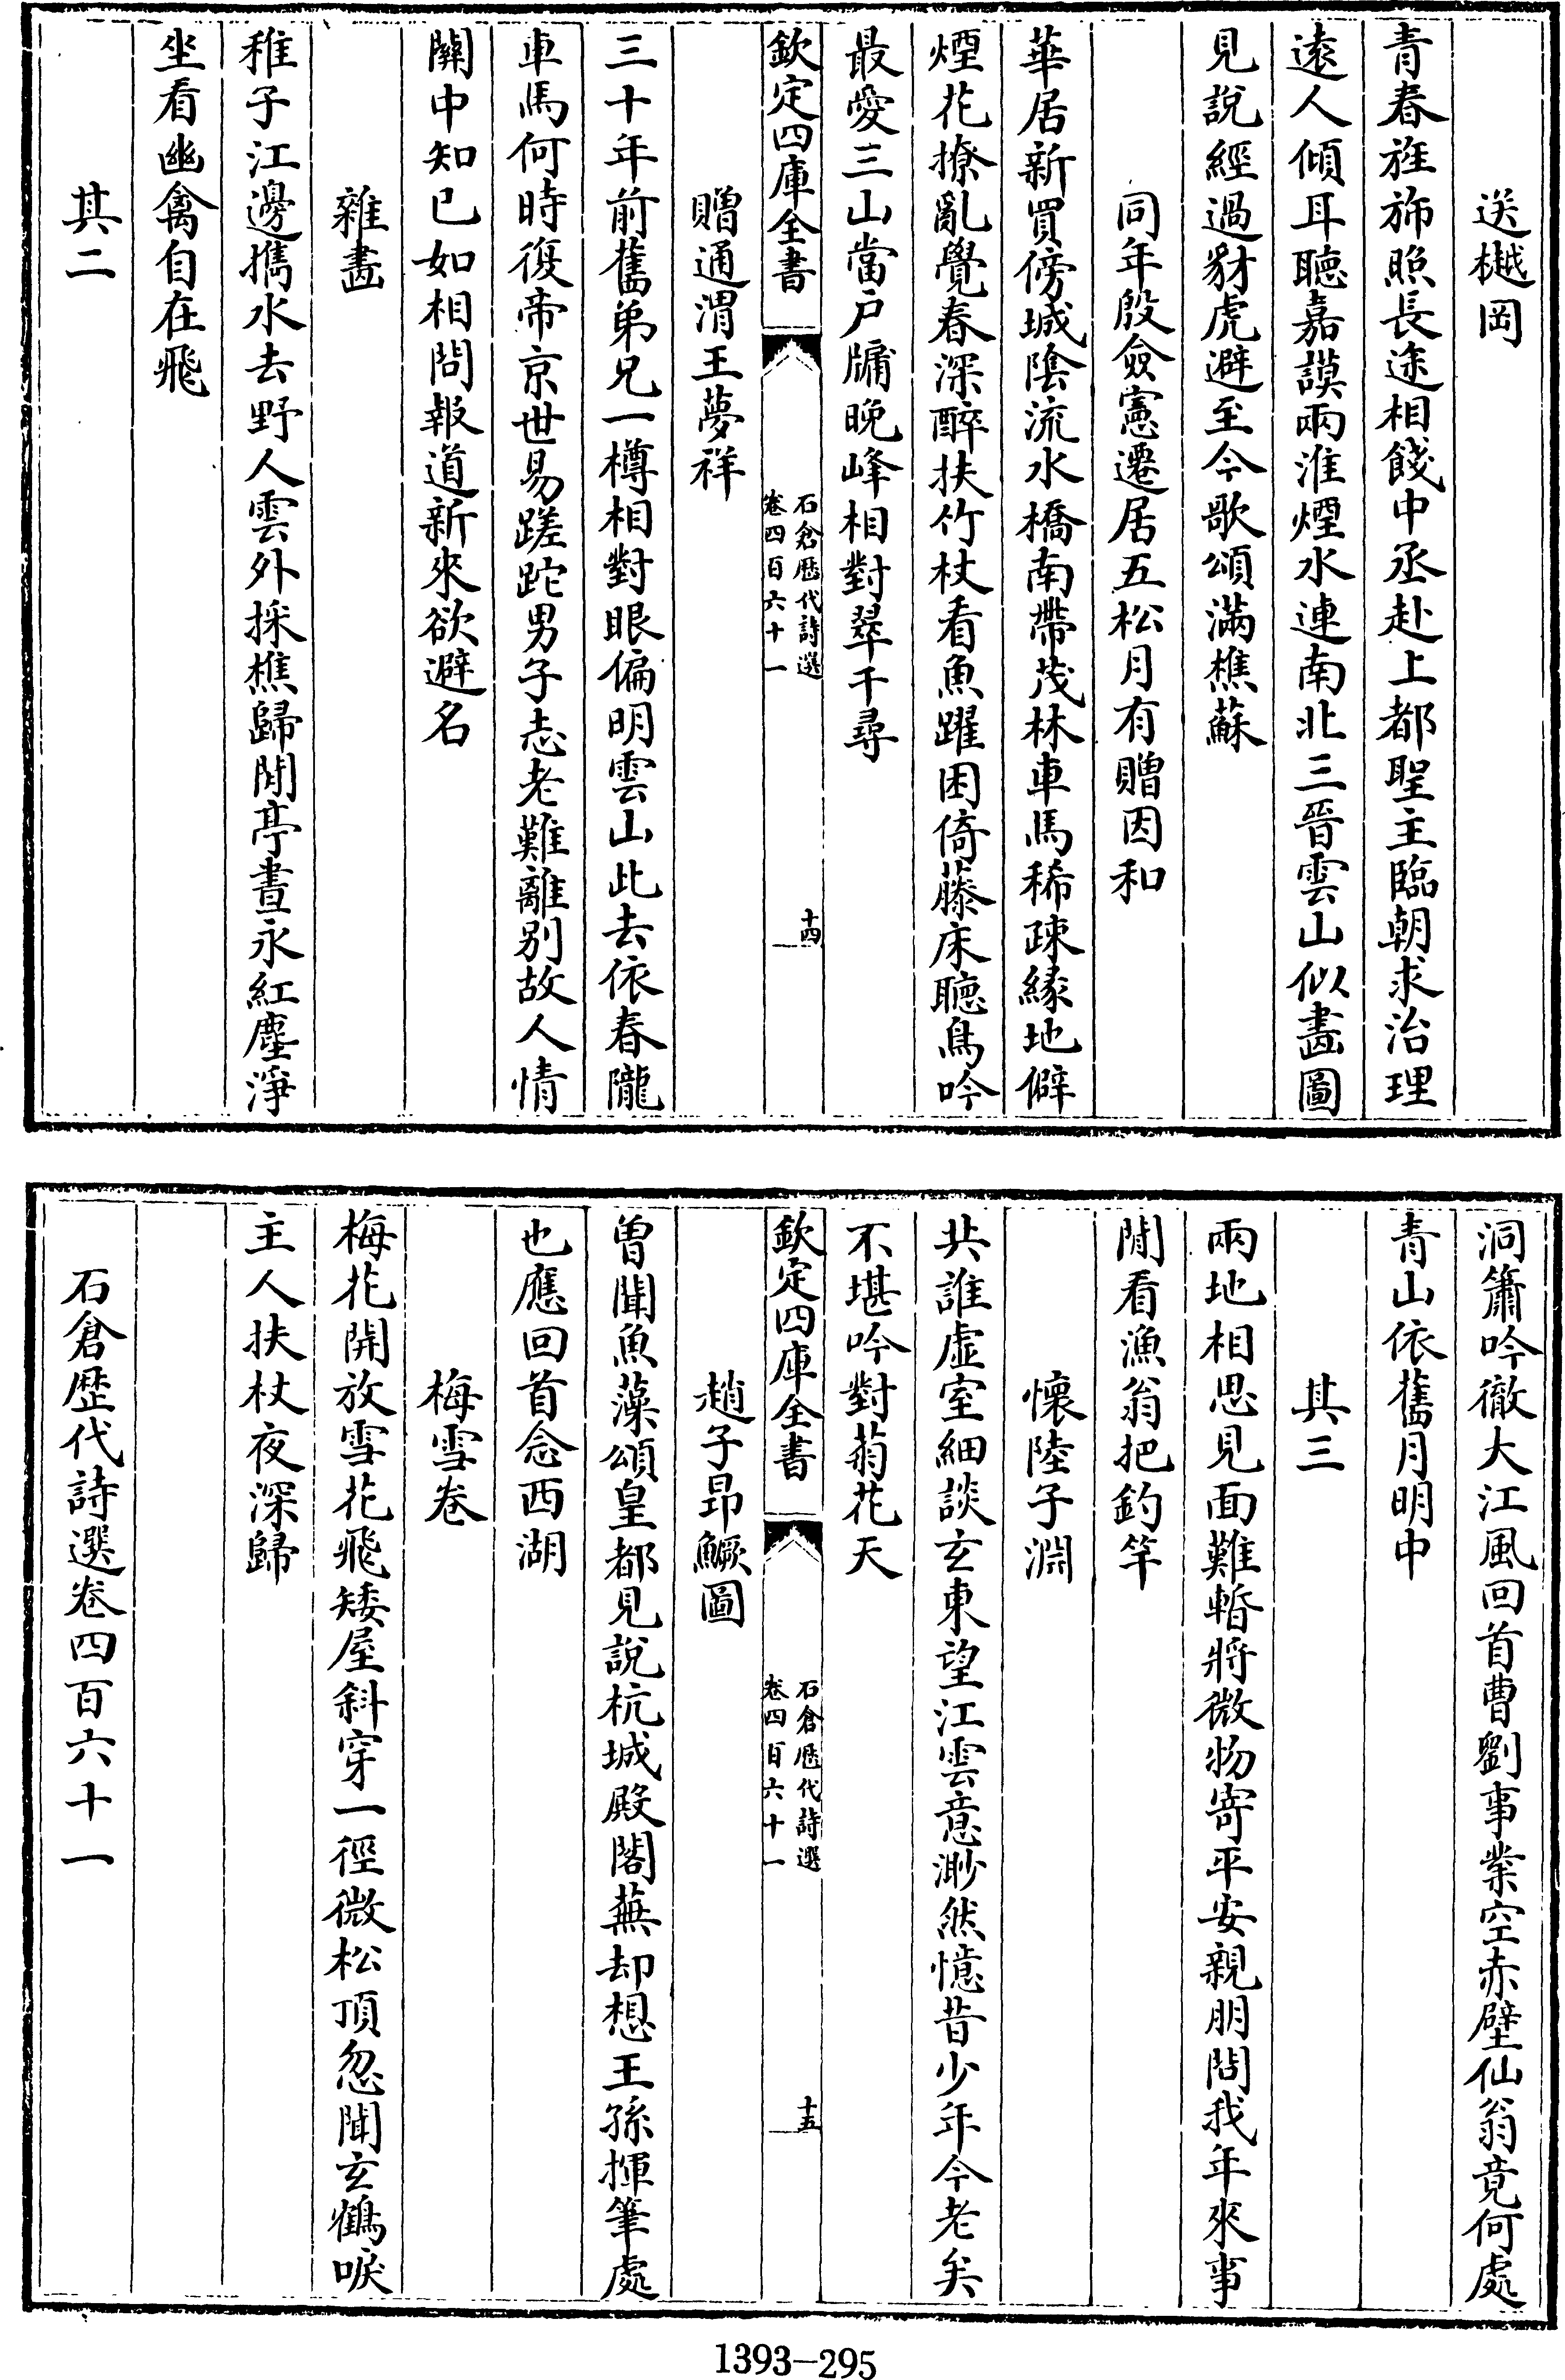 送樾岡
青春旌斾照長途相餞中丞赴上都聖主臨朝求治理
遠人傾耳聽嘉謨兩淮煙水連南北三晉雲山似畵圖
見說經過豺虎避至今歌頌滿樵蘇
同年殷僉憲遷居五松月有贈因和
華居新買傍城陰流水橋南帶茂林車馬稀疎緣地僻
煙花撩亂覺春深醉扶竹杖看魚躍困倚藤床聽鳥吟
最愛三山當户牖晚峰相對翠千尋
欽定四庫全書
石倉歷代詩選
卷四百六十一
十四
贈通渭王夢祥
三十年前舊弟兄一樽相對眼偏明雲山此去依春隴
車馬何時復帝京世易蹉跎男子志老難離别故人情
關中知已如相問報道新來欲避名
雜畵
稚子江邊擕水去野人雲外採樵歸閒亭晝永紅塵淨
坐看幽禽自在飛
其二
洞簫吟徹大江風回首曹劉事業空赤壁仙翁竟何處
青山依舊月明中
其三
兩地相思見面難暫將微物寄平安親朋問我年來事
閒看漁翁把釣竿
懷陸子淵
共誰虛室細談玄東望江雲意渺然憶昔少年今老矣
不堪吟對菊花天
欽定四庫全書
石倉歷代詩選
卷四百六十一
十五
趙子昂鱖圖
曽聞魚藻頌皇都見說杭城殿閣蕪却想王孫揮筆處
也應回首念西湖
梅雪卷
梅花開放雪花飛矮屋斜穿一徑微松頂忽聞玄鶴唳
主人扶杖夜深歸
石倉歷代詩選卷四百六十一
1393-295